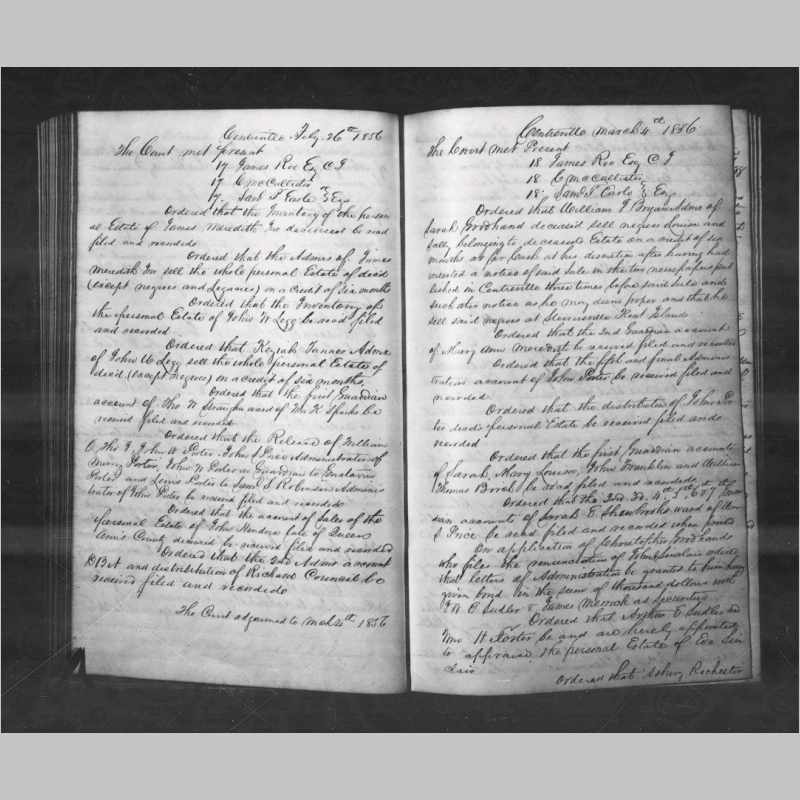 Centreville Feby. 26th 1856
The Court met present
17 James Roe Esq C J
17 C McCallister
17. Saml T Earle } Esq
Ordered that the Inventory of the person
al Estate of James Meredith Jnr deceased be read
filed and recorded
Ordered that the Admrs of James
Meredith Jnr sell the whole personal Estate of decd
(except negroes and Legacies) on a credit of six months
Ordered that the Inventory of
the personal Estate of John W Legg be read filed
and recorded
Ordered that Keziah Admx
of John W Legg sell the whole personal Estate of
decd (except Negroes) on a credit of six months,
Ordered that the first Guardian
account of Tho. W ward of Wm K Sparks be
received filed and recorded
Ordered that the Release of William
C, Tho J John W Porter John S Price Administrator of
Porter, John W Porter as Guardian to
Porter and Lewis Porter to Saml S Robinson Adminis
trator of John Porter be received filed and recorded
Ordered that the account of Sales of the
personal Estate of John Hendrix late of Queen
Ann's County deceased be received filed and recorded
Ordered that the 2nd Admn account
and distribution of Richard Councell be
received filed and recorded
The Court adjourned to March 4th 1856
Centreville March 4th 1856.
The Court Met Present
18 James Roe Esq C J
18 C McCallister
18. Saml T Earle } Esq
Ordered that William J Bryan Admr of
Sarah Goodhand deceased sell negroes Louisa and
Sally belonging to deceased Estate on a credit of six
months or for Cash at his discretion after having had
inserted a notice of said sale in the two newspapers pub
lished in Centreville three times before said sale and
such other notice as he may deem proper and that he
sell said negroes at Stevensville Kent Island
Ordered that the 2nd Guardian account
of Mary Ann Meredith be received filed and recorded
Ordered that the fifth and final Adminis
tration account of John Porter be received filed and
recorded
Ordered that the distribution of John Por
ter decd personal Estate be received filed and
recorded
Ordered that the first Guardian accounts
of Sarah, Mary Louisa, John Franklin and William
Thomas be read filed and recorded
Ordered that the 2nd 3d. 4th 5th 6 & 7 Guar
dian accounts of Sarah E ward of Wm
S Price be read filed and recorded when
On application of Christopher Goodhand
who files the renunciation of John Sinclair
that letters of Administration be granted to him having
given bond in the sum of thousand dollars with
A C Sudler & James Merrick as Securities
Ordered that Arthur E Sudler and
Wm H Porter be and are hereby appointed
to appraise the personal Estate of Eve Sin
clair
Ordered that Asbury Rochester